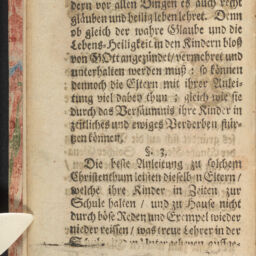 dern vor allen Dingen es auch recht
gläuben und heilig leben lehret. Denn
ob gleich der wahre Glaube und die
Lebens-Heiligkeit in den Kindern bloß
von GOtt angezündet/ vermehret und
unterhalten werden muß: so können
dennoch die Eltern mit ihrer Anlei-
tung viel dabey thun; gleich wie sie
durch das Versäumnis ihre Kinder in
zeitliches und ewiges Verderben stür-
tzen können.
§. 3.
Die beste Anleitung zu solchem
Christenthum leisten dieselben Eltern/
welche ihre Kinder in Zeiten zur
Schule halten/ und zu Hause nicht
durch böse Reden und Exempel wieder
nieder reissen/ was treue Lehrer in der